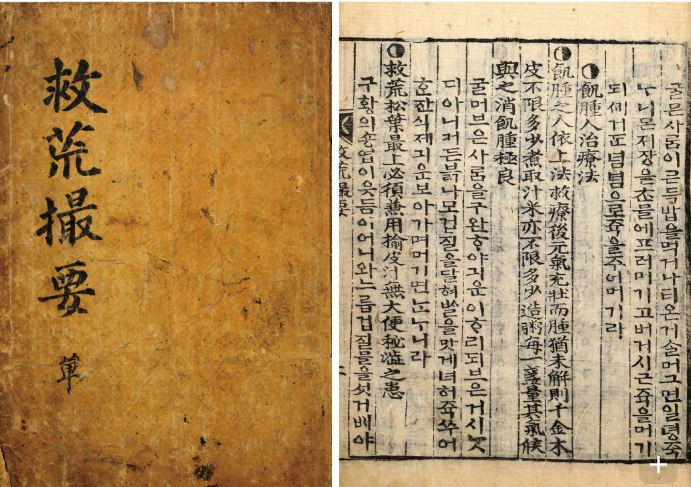 救荒撮要
單
굴믄사ᄅᆞᆷ이믄득밥을먹거나더온거슬머그면일뎡죽
ᄂᆞ니몬져쟝을ᄎᆞᆫ믈에프러머기고버거시근쥭을머기
념념으로쥭을주어머기라
◐飢腫人治療法
◐飢腫之人依上法救療後元氣充壯而腫猶未解則千金木
皮不限多少煮取汁米亦不限多少造粥每一盞量其氣候
與之消飢腫極良
굴머브은사ᄅᆞᆷ을구완ᄒᆞ야긔운이ᄒᆞ리되브은거시ᄂᆞᆺ
디아니커든븕나모겁질을달혀ᄡᆞᆯ을맛게녀허쥭쑤어
ᄒᆞᆫ잔식제긔운보아가며머기면됴ᄂᆞ니라
◐救荒松葉最上必須兼用楡皮汁無大便秘澁之患
구황의숑엽이읏듬이어니와느릅겁질믈을섯거배야
救荒撮要